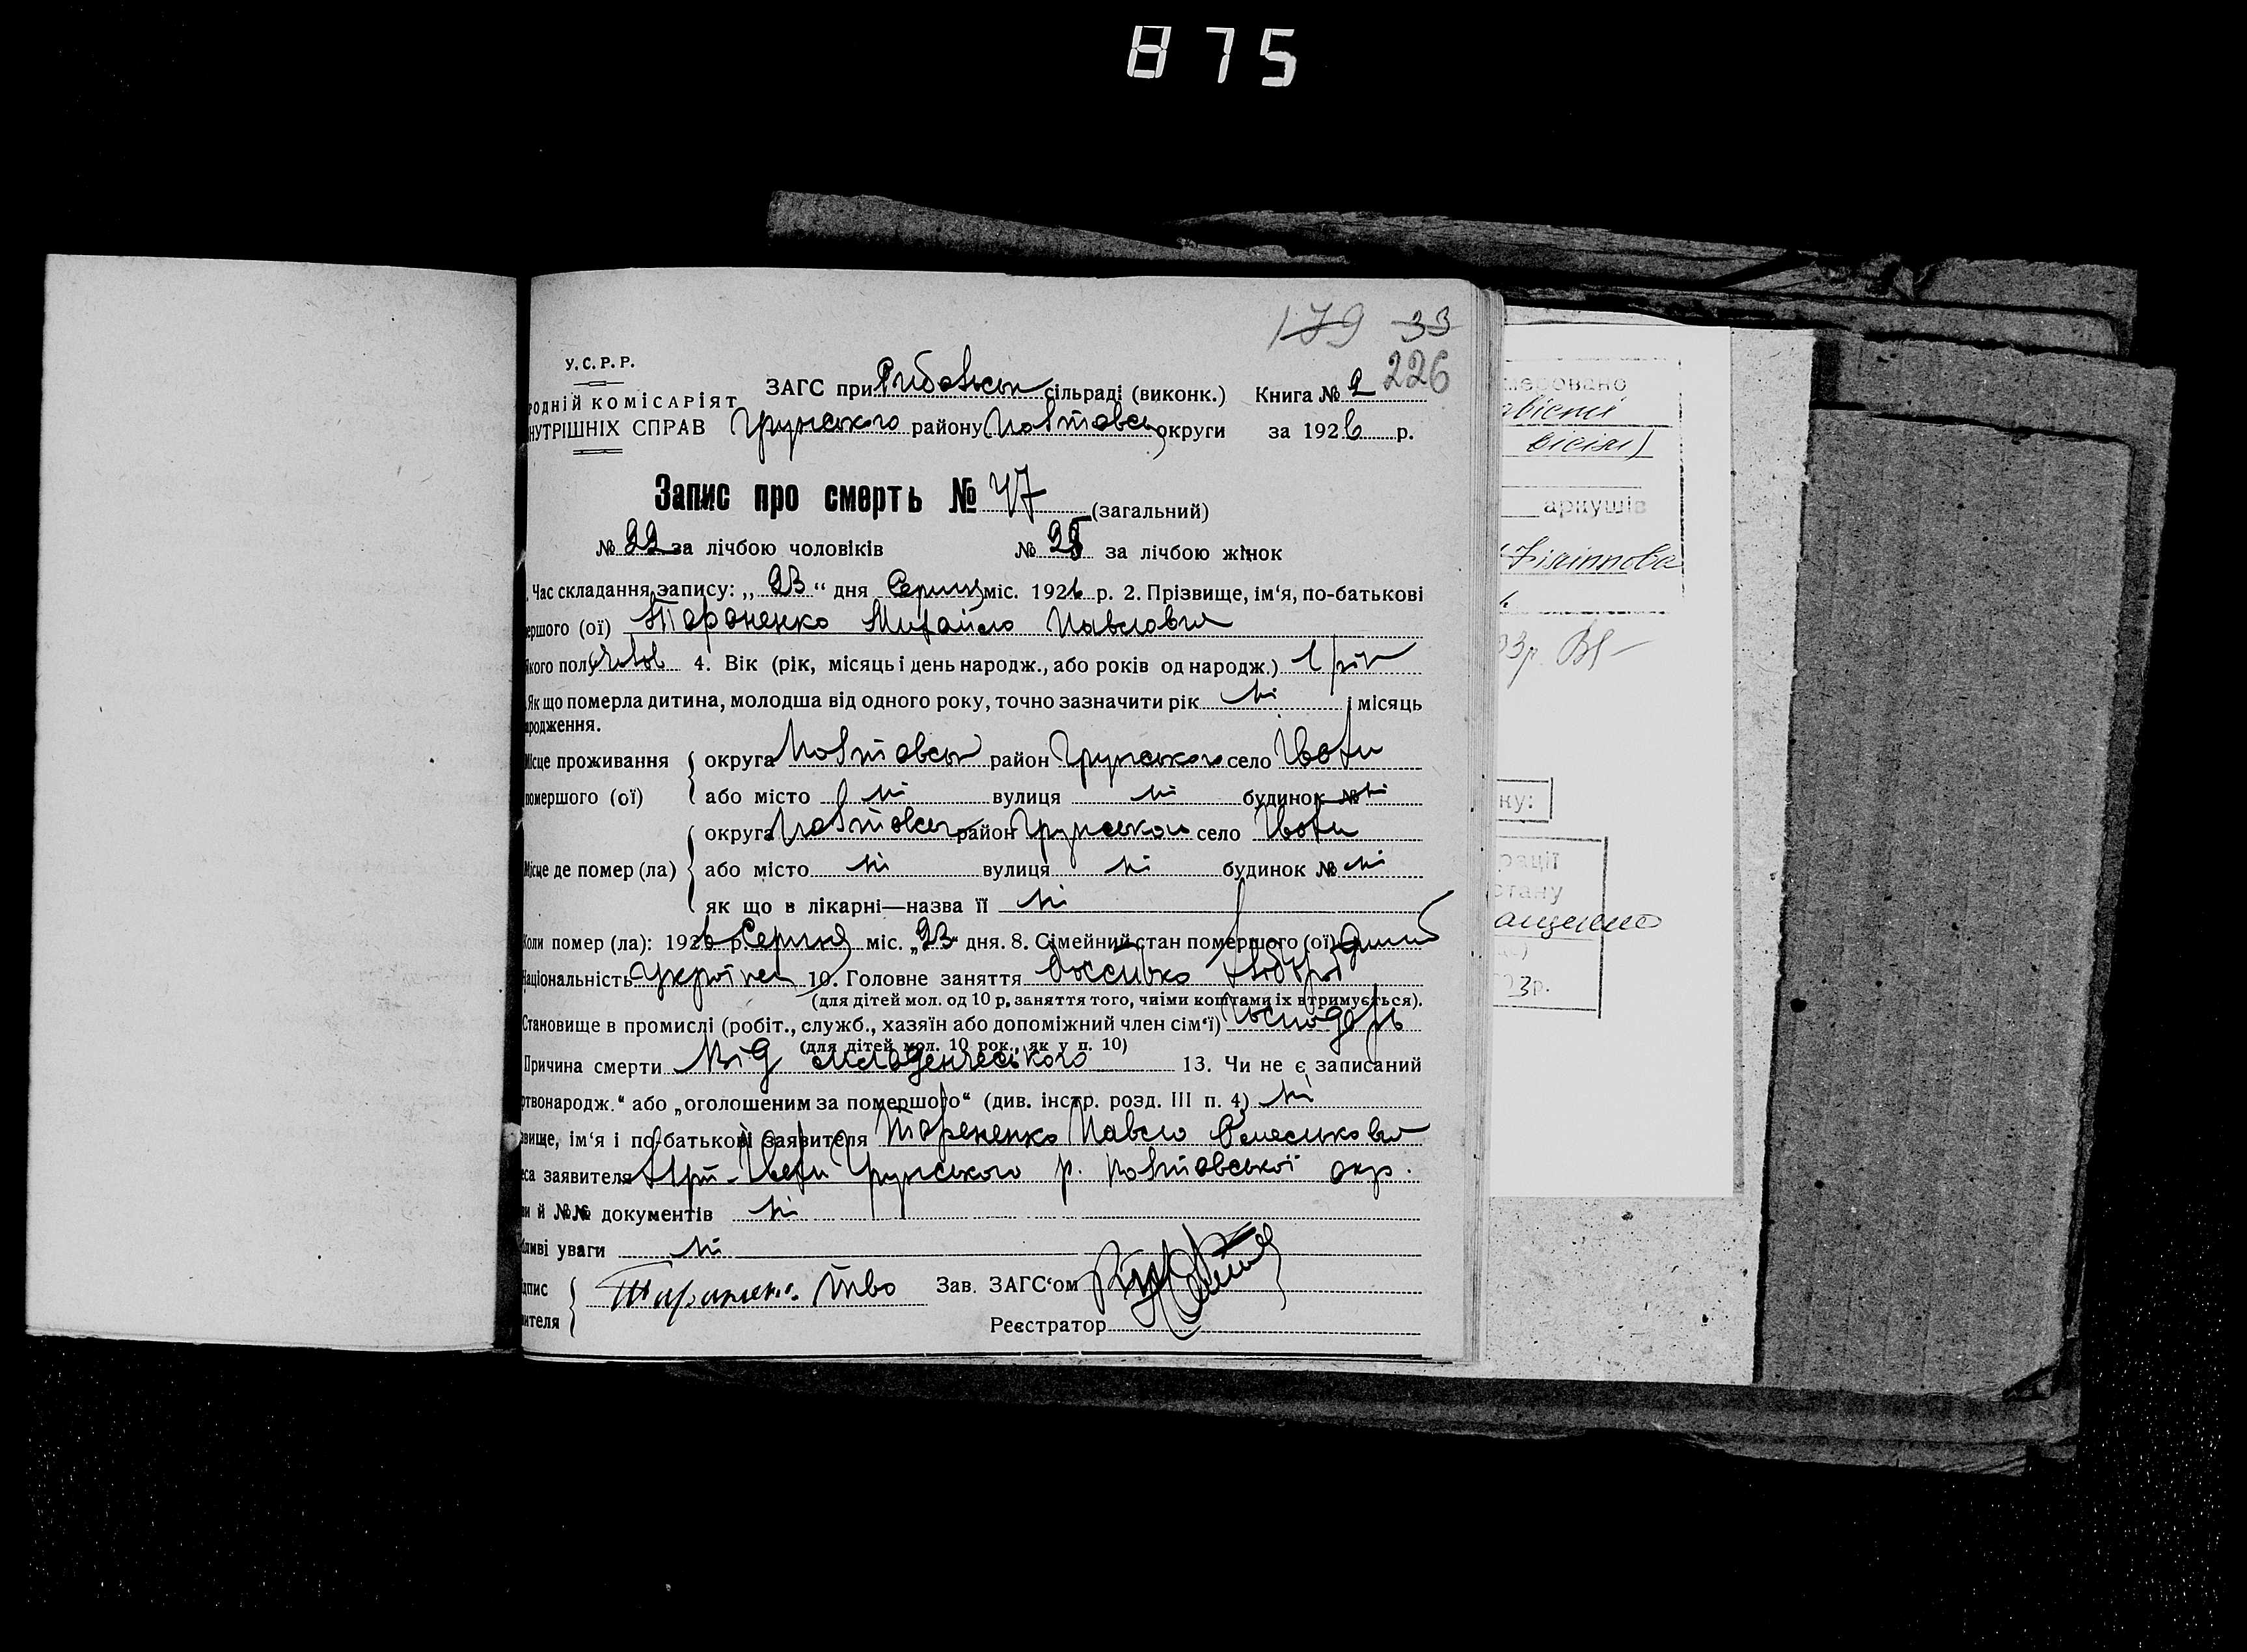 875
179 33
226
У.С.Р.Р.
ЗАГС при Рибальськ сільраді (виконк.) Книга № 2
РОДНІЙ КОМІСАРІЯТ
НУТРІШНІХ СПРАВ Грунського району Полтавськ округи за 1926 р.
Запис про смерть № 47 (загальний)
№ 22 за лічбою чоловіків № 25 за лічбою жінок
Час складання запису: „23“ дня Серпня міс. 1926 р. 2. Прізвище, ім‘я, по-батькові
ершого (ої) Тараненко Михайло Павлович
якого полу 4. Вік (рік, місяць і день народж., або років од народж.) 1 рік
Як що померла дитина, молодша від одного року, точно зазначити рік ні і місяць
ародження.
Місце проживання округа Полтавськ район Грунського село
померлого (ої) або місто ні вулиця ні будинок № ні
округа Полтавськ район Грунськой село
Місце де помер (ла) або місто ні вулиця ні будинок № ні
як що в лікарні—назва її ні
Коли помер (ла): 1926 р. Серпня міс. „23“ дня. 8. Сімейний стан помершого (ої)
Національність Українец 10. Головне заняття хлібороб
(для дітей мол. од 10 р. заняття того, чиїми коштами їх втримується).
Становище в промислі (робіт., служб., хазяїн або допоміжний член сім‘ї) господарь
(для дітей мол. 10 рок., як у п. 10)
Причина смерти Від младенческого 13. Чи не є записаний
ртвонародж.“ або „оголошеним за померлого“ (див. інстр. розд. III п. 4) ні
звище, ім‘я і по-батькові заявителя Тараненко Павло
еса заявителя Грунського р. Полтавської окр.
ви й №№ документів ні
бливі уваги ні
дпис Тараненко Зав. ЗАГС‘ом
вителя Реєстратор
меровано
аркушів
Філіппова
03р.
ку:
рації
стану
ащенко
03р.